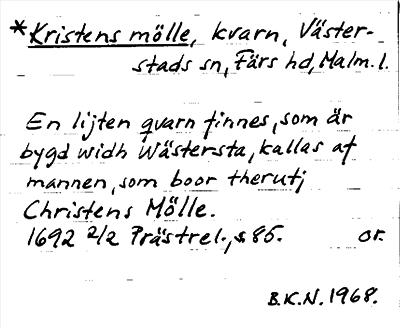 *Kristens mölle, kvarn, Väster-
stads sn, Färs hd, Malm. l.
En lijten qvarn finnes, som är
bygd widh Wästersta, kallas af
mannen, som boor therutj
Christens Mölle.
1692 2/2 Prästrel., s 85. or.
B.K.N. 1968.